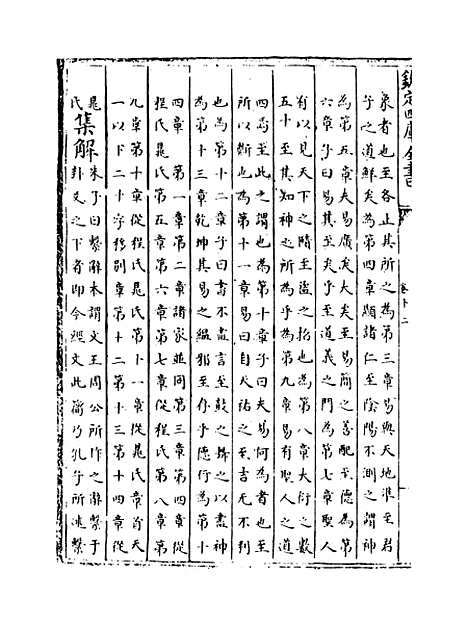 欽定四庫全書
卷十二
象者也至各止其所之為第三章易與天地準至君
子之道鮮矣為第四章顯諸仁至陰陽不測之謂神
為第五章夫易廣矣大矣至易簡之善配至德為第
六章子曰易其至矣乎至道義之門為第七章聖人
有以見天下之賾至盜之招也為第八章大衍之數
五十至其知神之所為乎為第九章易有聖人之道
四焉至此之謂也為第十章子曰夫易何為者也至
所以斷也為第十一章易曰自天祐之至吉无不利
也為第十二章子曰書不盡言至鼓之舞之以盡神
為第十三章乾坤其易之緼邪至存乎德行為第十
四章 第一章第二章諸家並同第三章第四章從
程氏晁氏第五章第六章第七章從程氏第八章第
九章第十章從程氏晁氏第十一章從晁氏章首天
一以下二十字移別章第十二第十三第十四章從
晁氏
集解朱子曰繫辭本謂文王周公所作之辭繫于
卦爻之下者即今經文此篇乃孔子所述繫